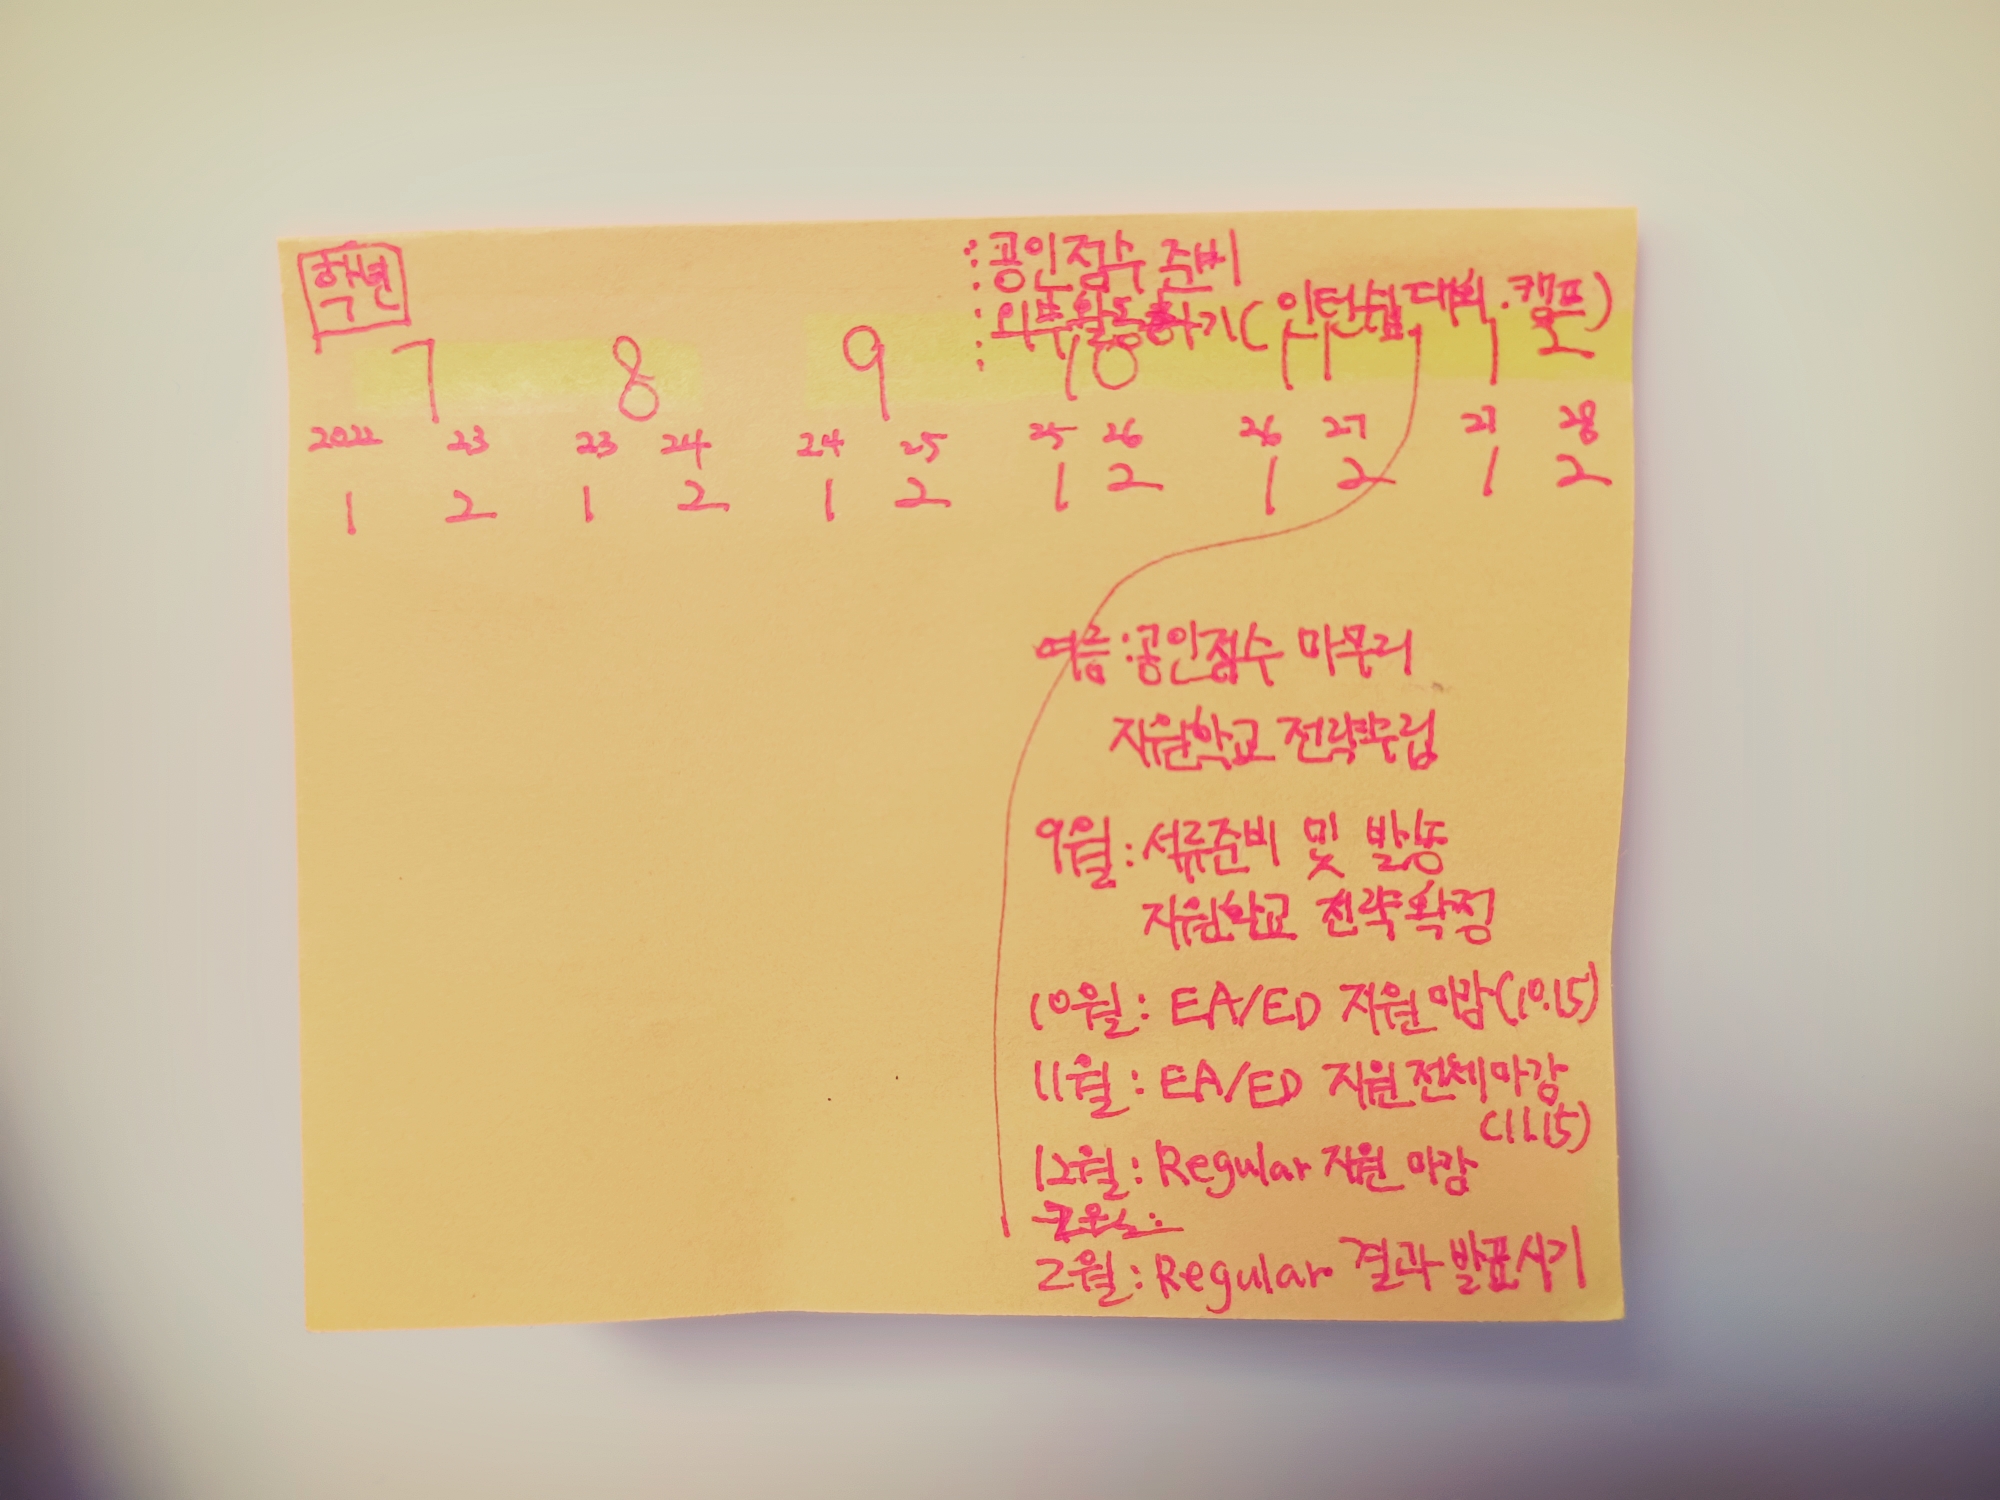 학년
: 공인점수 준비
: 외부활동하기(인턴쉽, 대회, 캠프)
:
7 8 9 10 11 12
2022 23 23 24 24 25 25 26 26 27 27 28
1 2 1 2 1 2 1 2 1 2 1 2
여름 : 공인점수 마무리
지원학교 전략수립
9월 : 서류준비 및 발송
지원학교 전략확정
10월 : EA/ED 지원 마감(10.15)
11월 : EA/ED 지원 전체 마감
(11.15)
12월 : Regular 지원 마감
2월 : Regular 결과 발표시기